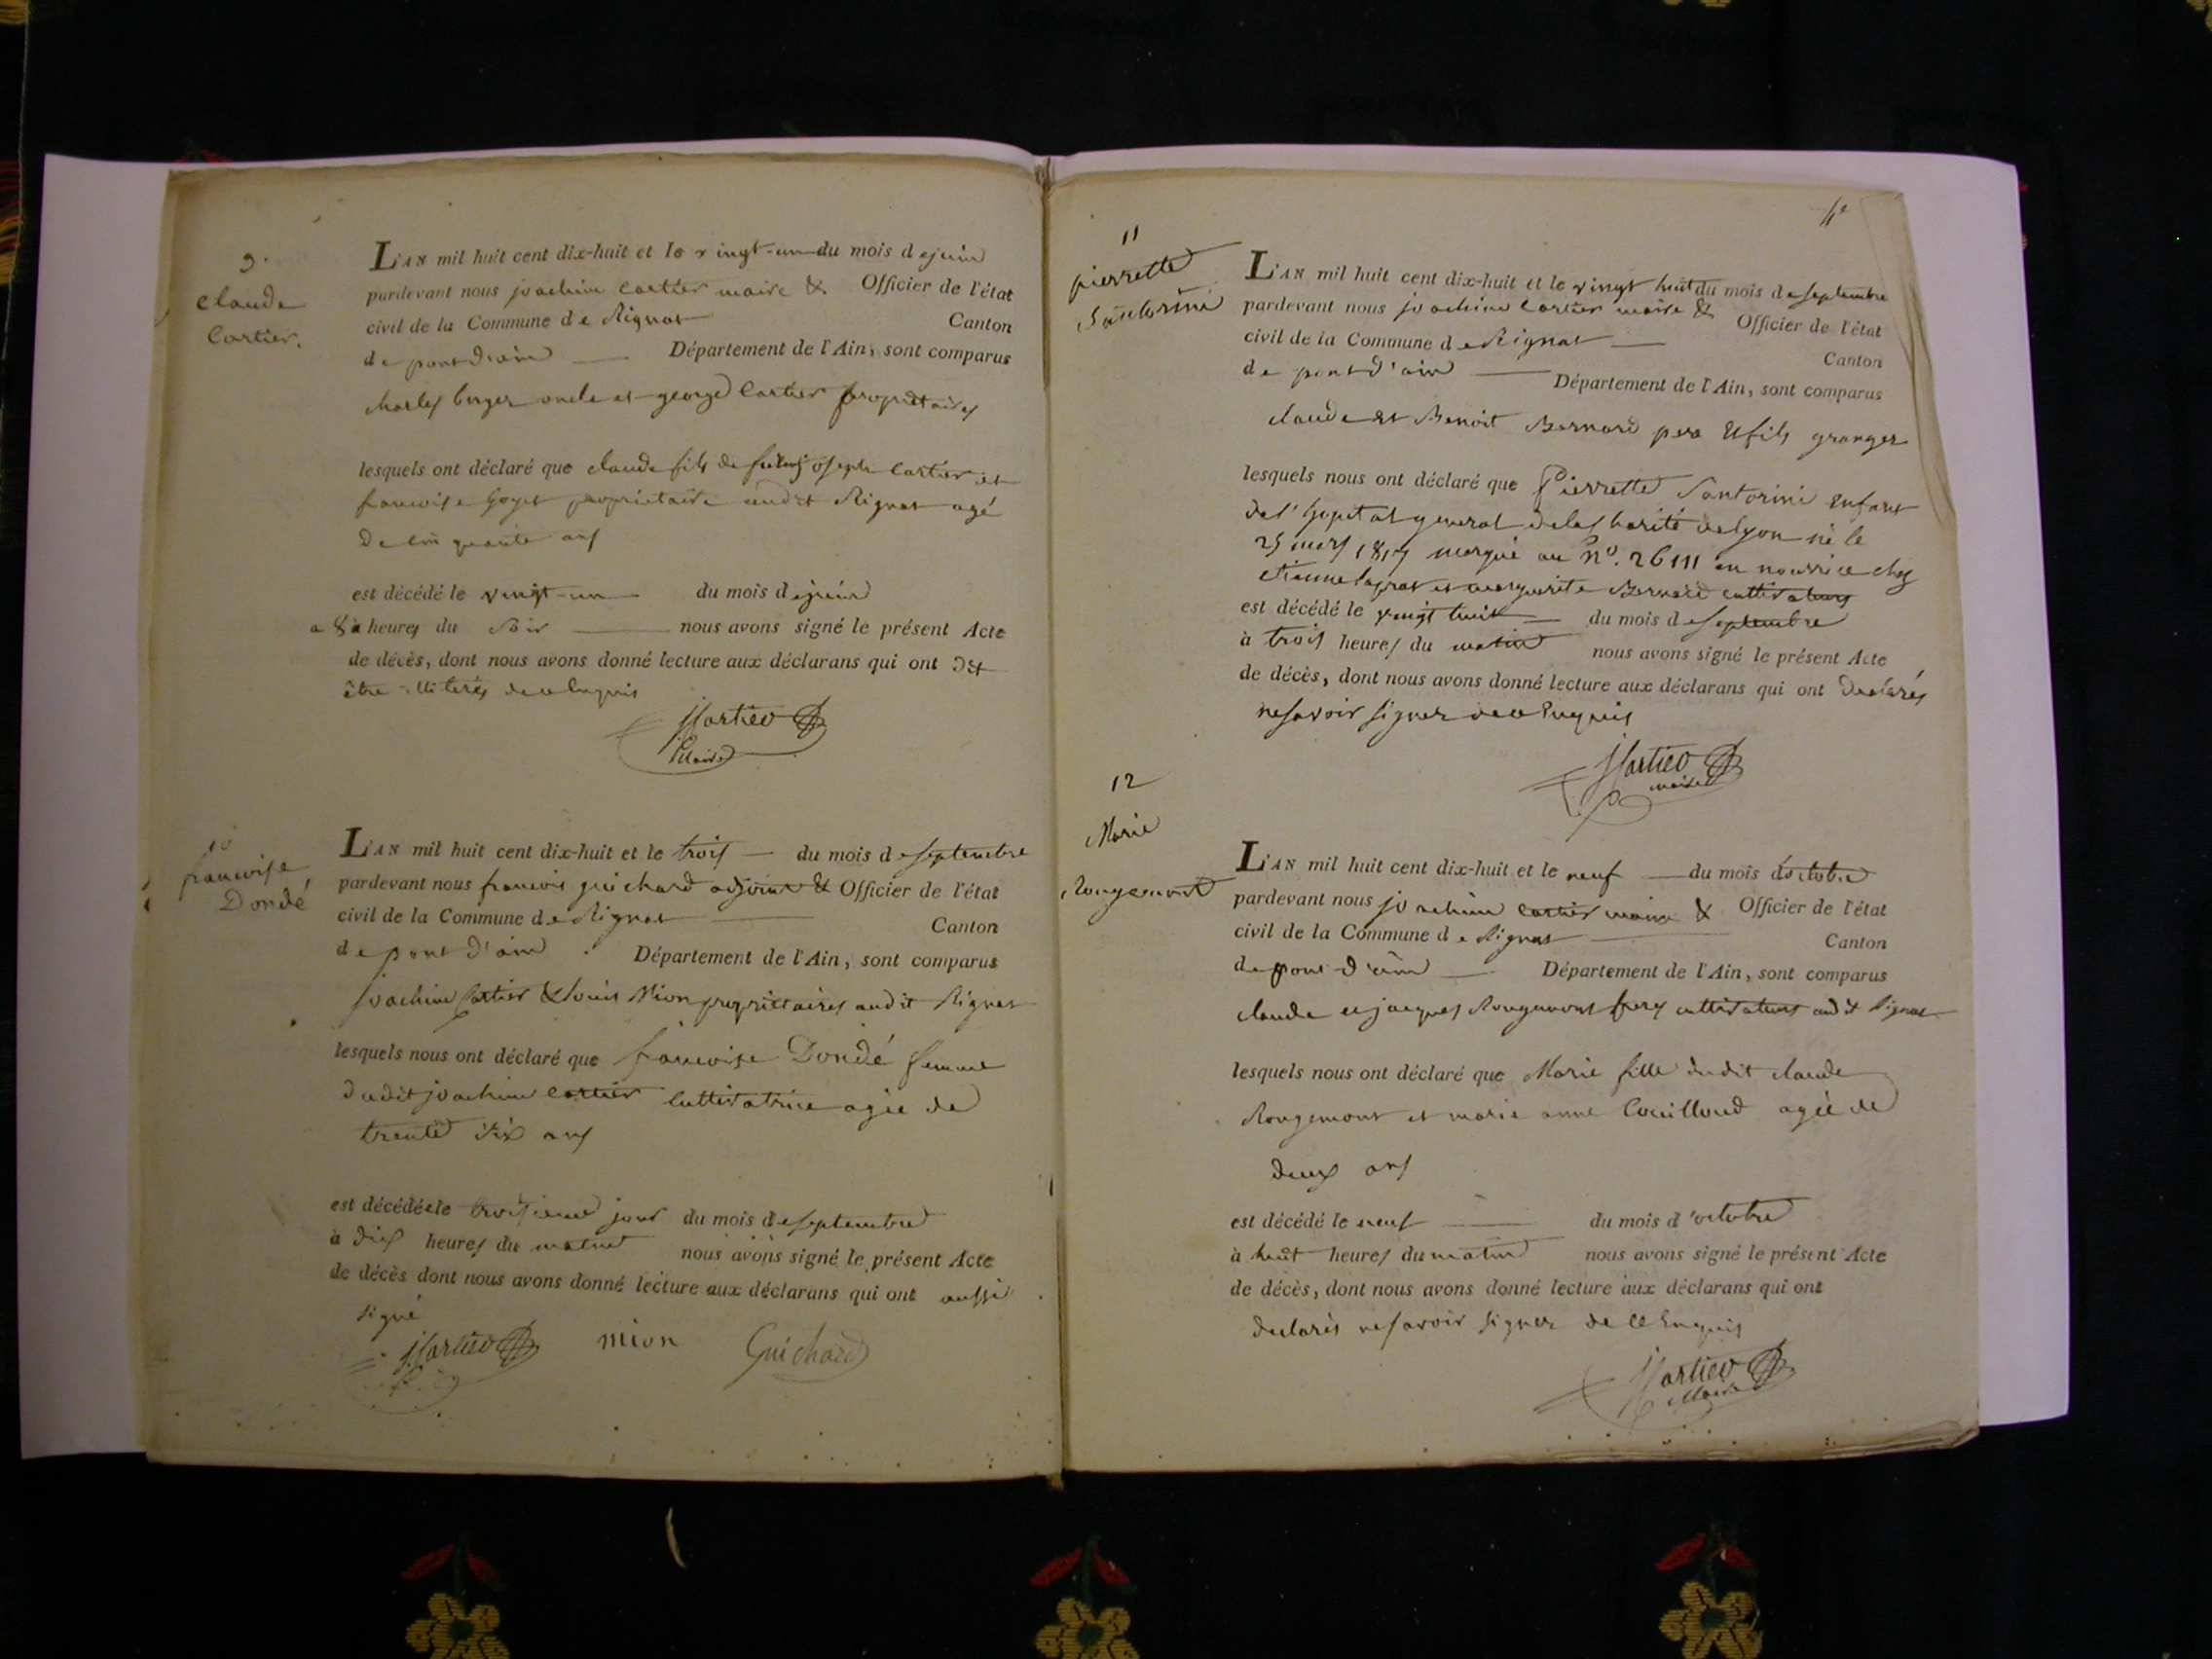 9.
claude
Cartier.
L'AN mil huit cent dix-huit et le vingt-un du mois de juin
pardevant nous joachim Cartier maire & Officier de l'état
civil de la Commune de Rignat Canton
de pont d'ain Département de l'Ain, sont comparus
charles berger oncle et george Cartier propriétaires
lesquels ont déclaré que claude fils de joseph Cartier et
francoise Goyet proprietaire audit Rignat agé
de cinquante ans
est décédé le vingt-un du mois de juin
a 8 heures du soir nous avons signé le présent Acte
de décès, dont nous avons donné lecture aux déclarans qui ont dit
être illiterés de ce Enquis
JCartier
Maire
10
francoise
Dondé
L'AN mil huit cent dix-huit et le trois du mois de septembre
pardevant nous francois guichard adjoint & Officier de l'état
civil de la Commune de Rignat Canton
de pont d'ain Département de l'Ain, sont comparus
joachim Cartier & Louis Mion proprietaires audit Rignat
lesquels nous ont déclaré que francoise Dondé femme
dudit joachim Cartier Cultivatrice agée de
trente six ans
est décédée le troisieme jour du mois de septembre
à dix heures du matin nous avons signé le présent Acte
de décès dont nous avons donné lecture aux déclarans qui ont aussi
signé
JCartier mion Guichard
11
pierrette
Santorini
L'AN mil huit cent dix-huit et le vingt huit du mois de septembre
pardevant nous joachim Cartier maire & Officier de l'état
civil de la Commune de Rignat Canton
de pont d'ain Département de l'Ain, sont comparus
claude et Benoit Bernard pere & fils granger
lesquels nous ont déclaré que Pierrette Santorini enfant
de l'hopital general de la Charité de Lyon né le
25 mars 1817 marqué au N°. 26111 en nourrice chez
etienne lagrat et marguerite Bernard cultivateurs
est décédé le vingt huit du mois de septembre
à trois heures du matin nous avons signé le présent Acte
de décès, dont nous avons donné lecture aux déclarans qui ont declarés
ne savoir signer de ce Enquis
JCartier
maire
12
Marie
Rougemont
L'AN mil huit cent dix-huit et le neuf du mois d'octobre
pardevant nous joachim Cartier maire & Officier de l'état
civil de la Commune de Rignat Canton
de pont d'ain Département de l'Ain, sont comparus
claude et jacques Rougemont frere cultivateurs audit Rignat
lesquels nous ont déclaré que Marie fille dudit claude
Rougemont et marie anne Couilloud agée de
deux ans
est décédé le neuf du mois d'octobre
à huit heures du matin nous avons signé le présent Acte
de décès, dont nous avons donné lecture aux déclarans qui ont
declarés ne savoir signer de ce Enquis
JCartier
Maire